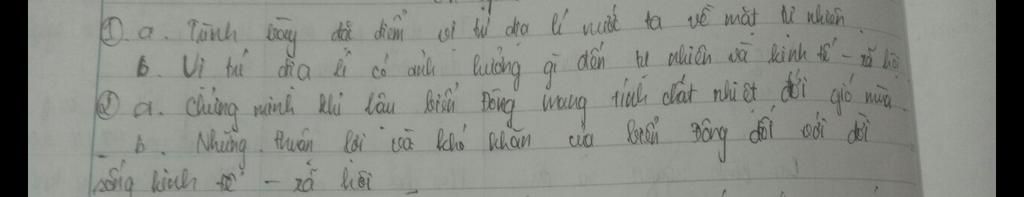 ① a. Trình bày đặc điểm vị trí địa lí nước ta về mặt tự nhiên
b. Vị trí địa lí có ảnh hưởng gì đến tự nhiên và kinh tế - xã hội
② a. Chứng minh khí hậu biển Đông mang tính chất nhiệt đới gió mùa.
- b. Những thuận lợi và khó khăn của biển Đông đối với đời
sống kinh tế - xã hội.